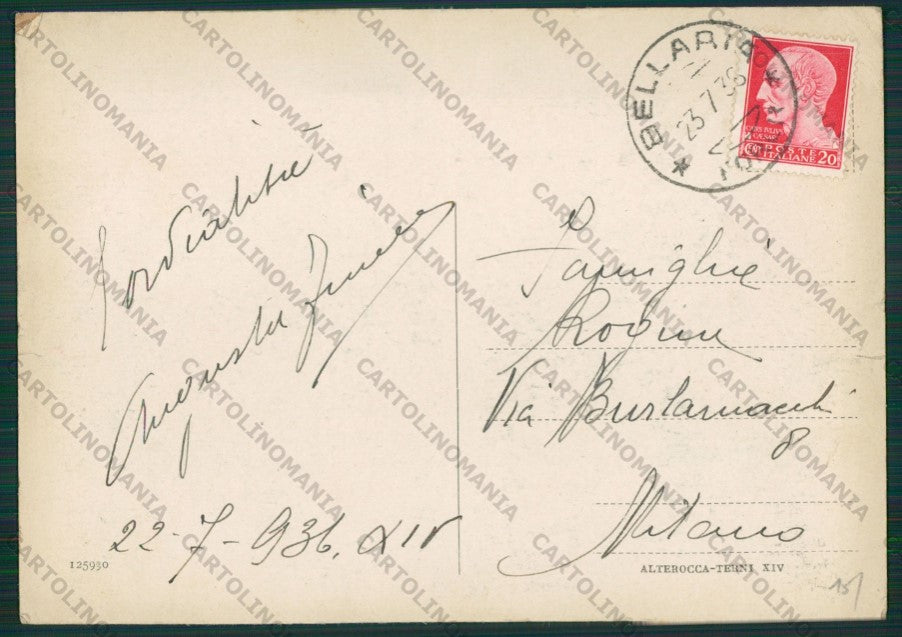 BELLARIA
23.7.36
CAIVS IVLIVS
CAESAR
POSTE
ITALIANE 20
Cordialità
Augusta
22-7-936. XIV
125930
Famiglia
Via Burlamacchi
8
Milano
ALTEROCCA-TERNI XIV
CARTOLINOMANIA